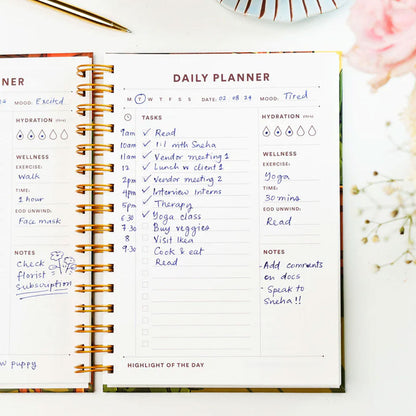 NNER
MOOD: Excited
HYDRATION (ltrs)
WELLNESS
EXERCISE:
Walk
TIME:
1 hour
EOD UNWIND:
Face mask
NOTES
Check
florist
subscription
puppy
DAILY PLANNER
M T W T F S S DATE: 02 08 24 MOOD: Tired
TASKS
9am ✓ Read
10am ✓ 1:1 with Sneha
11am ✓ Vendor meeting 1
12 ✓ Lunch w client 1
2pm ✓ Vendor meeting 2
4pm ✓ Interview Interns
5pm ✓ Therapy
6 30 ✓ Yoga class
7 30 Buy veggies
8 Visit Ikea
9 30 Cook & eat
Read
HIGHLIGHT OF THE DAY
HYDRATION (ltrs)
WELLNESS
EXERCISE:
Yoga
TIME:
30 mins
EOD UNWIND:
Read
NOTES
- Add comments
on docs
- Speak to
Sneha!!